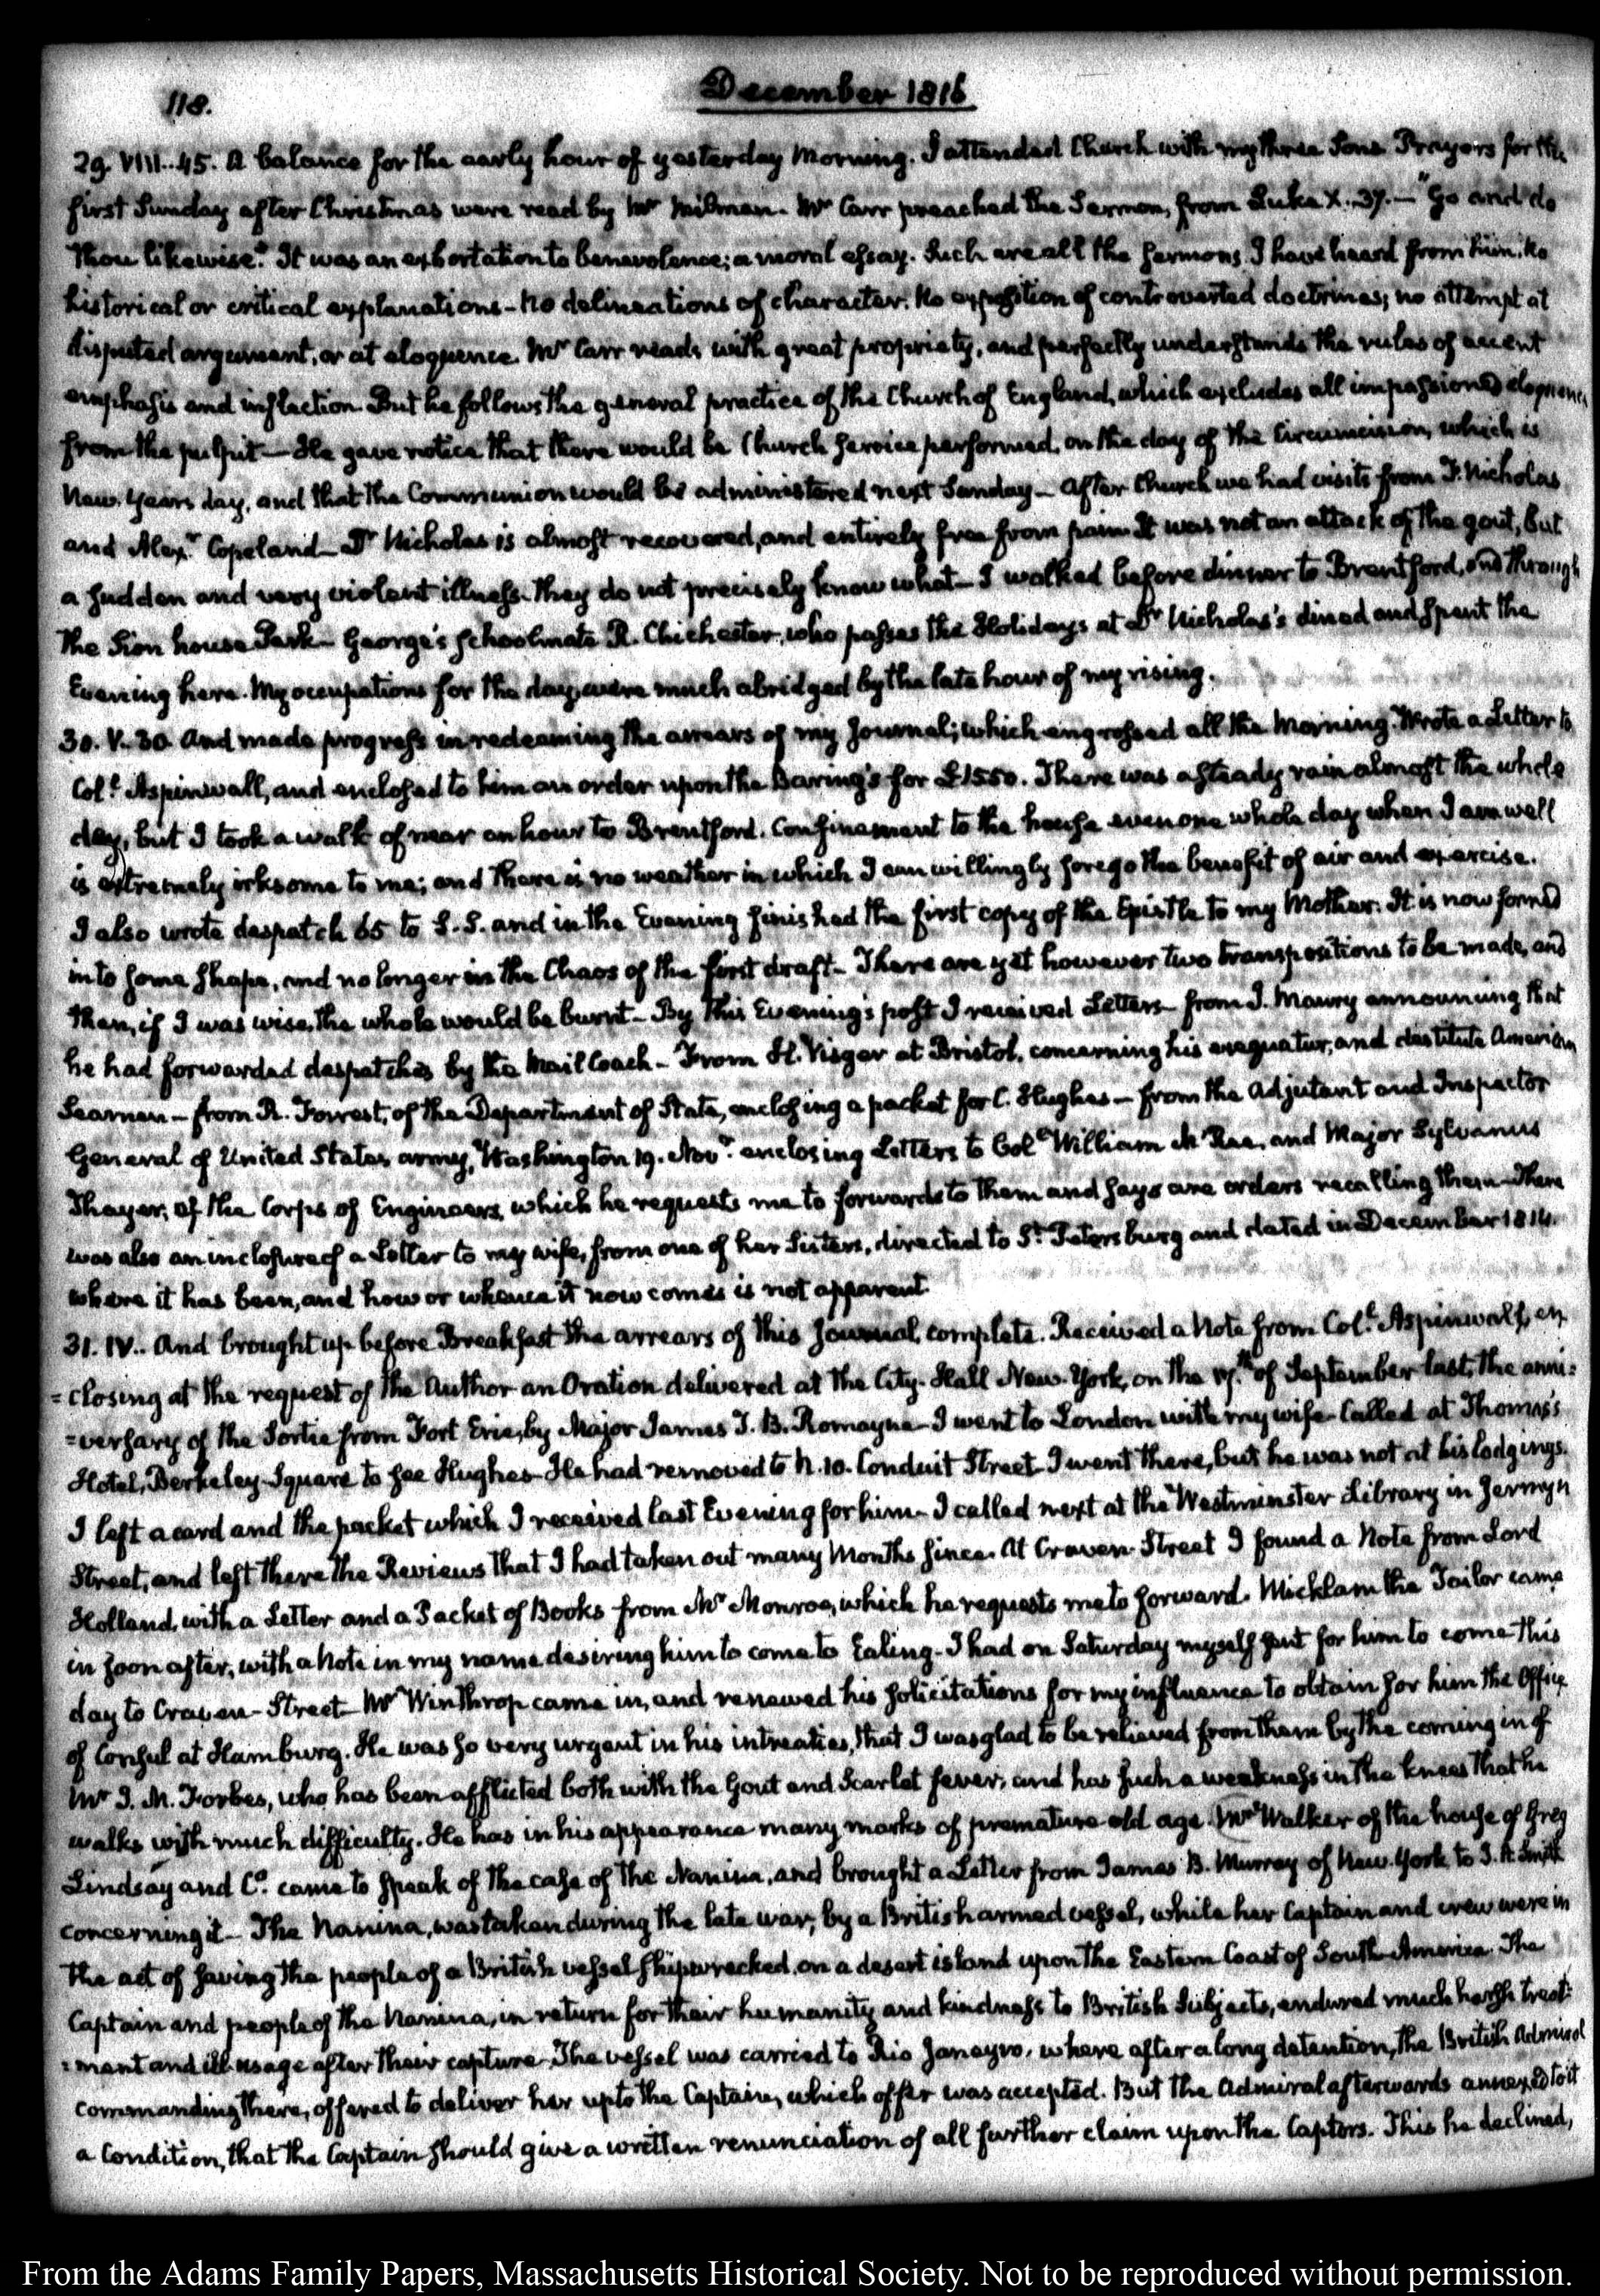 118.
December 1816
29. VIII..45. A balance for the early hour of yesterday Morning. I attended Church with my three Sons Prayers for the
first Sunday after Christmas were read by Mr Milman. Mr Carr preached the Sermon, from Luke X. 37.— "Go and do
thou likewise". It was an exhortation to benevolence; a moral essay. Such are all the Sermons I have heard from him. No
historical or critical explanations - No delineations of character. No exposition of controverted doctrines; no attempt at
disputed argument, or at eloquence. Mr Carr reads with great propriety, and perfectly understands the rules of accent
emphasis and inflection. But he follows the general practice of the Church of England, which excludes all impassioned eloquence
from the pulpit— He gave notice that there would be Church service performed, on the day of the Circumcision, which is
New-Years day, and that the Communion would be administered next Sunday— After Church we had visits from F. Nicholas
and Alexr Copeland— Dr Nicholas is almost recovered, and entirely free from pain. It was not an attack of the gout, but
a sudden and very violent illness. they do not precisely know what— I walked before dinner to Brentford, and through
the Sion house Park— George's schoolmate R. Chichester, who passes the Holidays at Dr Nicholas's dined and spent the
Evening here. My occupations for the day, were much abridged by the late hour of my rising.
30. V.30. And made progress in redeeming the arrears of my Journal; which engrossed all the Morning. Wrote a Letter to
Coll Aspinwall, and enclosed to him an order upon the Baring's for £1550. There was a steady rain almost the whole
day, but I took a walk of near an hour to Brentford. Confinement to the house even one whole day when I am well
is extremely irksome to me; and there is no weather in which I can willingly forego the benefit of air and exercise.
I also wrote despatch 65 to S.S. and in the Evening finished the first copy of the Epistle to my Mother. It is now formed
into some shape, and no longer in the Chaos of the first draft— There are yet however two transpositions to be made, and
then, if I was wise, the whole would be burnt— By this Evening's post I received Letters— from J. Maury announcing that
he had forwarded despatches by the Mail Coach— From H. Visger at Bristol, concerning his exequatur, and destitute American
Seamen— from R. Forrest, of the Department of State, enclosing a packet for C. Hughes— from the Adjutant and Inspector
General of United States army, Washington 19. Novr enclosing Letters to Coll William McRee, and Major Sylvanus
Thayer, of the Corps of Engineers, which he requests me to forward to them and says are orders recalling them— There
was also an inclosure of a Letter to my wife, from one of her Sisters, directed to St Petersburg and dated in December 1814.
where it has been, and how or whence it now comes is not apparent
31. IV.. And brought up before Breakfast the arrears of this Journal, complete. Received a Note from Coll Aspinwall, en
=closing at the request of the Author an Oration delivered at the City-Hall New-York, on the 17th of September last, the anni=
=versary of the Sortie from Fort Erie, by Major James T. B. Romayne— I went to London with my wife— Called at Thomas's
Hotel, Berkeley-Square to see Hughes— He had removed to N. 10. Conduit Street— I went there, but he was not at his lodgings.
I left a card and the packet which I received last Evening for him— I called next at the Westminster Library in Jermyn
Street, and left there the Reviews that I had taken out many Months since. At Craven-Street I found a Note from Lord
Holland, with a Letter and a Packet of Books from Mr Monroe, which he requests me to forward. Micklam the Tailor came
in soon after, with a Note in my name desiring him to come to Ealing— I had on Saturday myself sent for him to come this
day to Craven-Street— Mr Winthrop came in, and renewed his solicitations for my influence to obtain for him the Office
of Consul at Hamburg. He was so very urgent in his intreaties, that I was glad to be relieved from them by the coming in of
Mr J. M. Forbes, who has been afflicted both with the Gout and Scarlet fever; and has such a weakness in the knees that he
walks with much difficulty. He has in his appearance many marks of premature old age. Mr Walker of the house of Greg
Lindsay and Co. came to speak of the case of the Nanina, and brought a Letter from James B. Murray of New-York to J. A. Smith
concerning it— The Nanina, was taken during the late war, by a British armed vessel, while her Captain and crew were in
the act of saving the people of a British vessel shipwrecked, on a desert island upon the Eastern Coast of South-America. The
Captain and people of the Nanina, in return for their humanity and kindness to British Subjects, endured much harsh treat=
=ment and ill usage after their capture. The vessel was carried to Rio Janeyro, where after a long detention, the British Admiral
commanding there, offered to deliver her up to the Captain, which offer was accepted. But the Admiral afterwards annexed to it
a Condition, that the Captain should give a written renunciation of all further claim upon the Captors. This he declined,
From the Adams Family Papers, Massachusetts Historical Society. Not to be reproduced without permission.